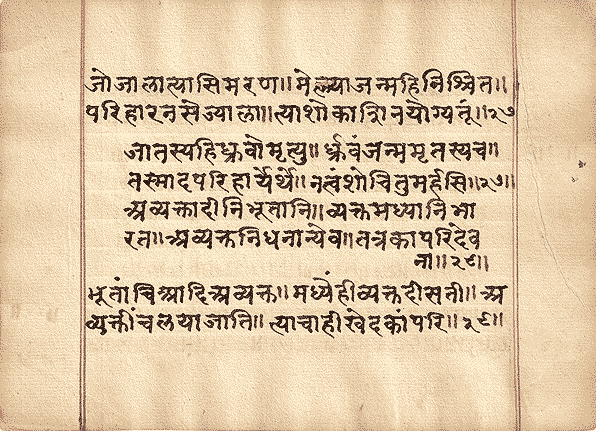 जोजालात्यासिमरण॥मेलयाजन्महिनिश्चित॥
परिहारनसेज्याला॥त्याशोकासिनयोग्यतूं॥२७
जातस्यहिध्रुवोमृत्यु॥र्ध्रुवंजन्ममृतस्यच॥
तस्मादपरिहार्येर्थे॥नत्वंशोचितुमर्हसि॥२७॥
अव्यक्तादीनिभूतानि॥व्यक्तमध्यानिभा
रत॥अव्यक्तनिधनान्येव॥तत्रकापरिदेव
ना॥२८॥
भूतांचिआदिअव्यक्त॥मध्येंहीव्यक्तदीसती॥अ
व्यक्तींचलयाजाति॥त्याचाहीखेदकांपरि॥२८॥